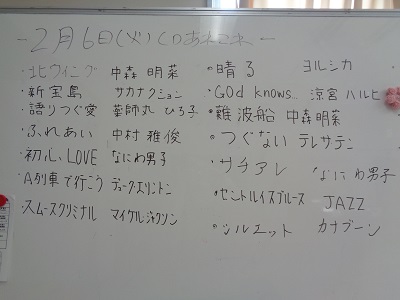 -2月6日(火)のあれこれ-
・北ウィング 中森 明菜
・新宝島 サカナクション
・語りつぐ愛 薬師丸 ひろ子
・ふれあい 中村 雅俊
・初心LOVE なにわ男子
・A列車で行こう デューク・エリントン
・スムースクリミナル マイケルジャクソン
・晴る ヨルシカ
・God knows... 涼宮ハルヒ
・難破船 中森明菜
・つぐない テレサテン
・サチアレ なにわ男子
・セントルイスブルース JAZZ
・シルエット カナブーン